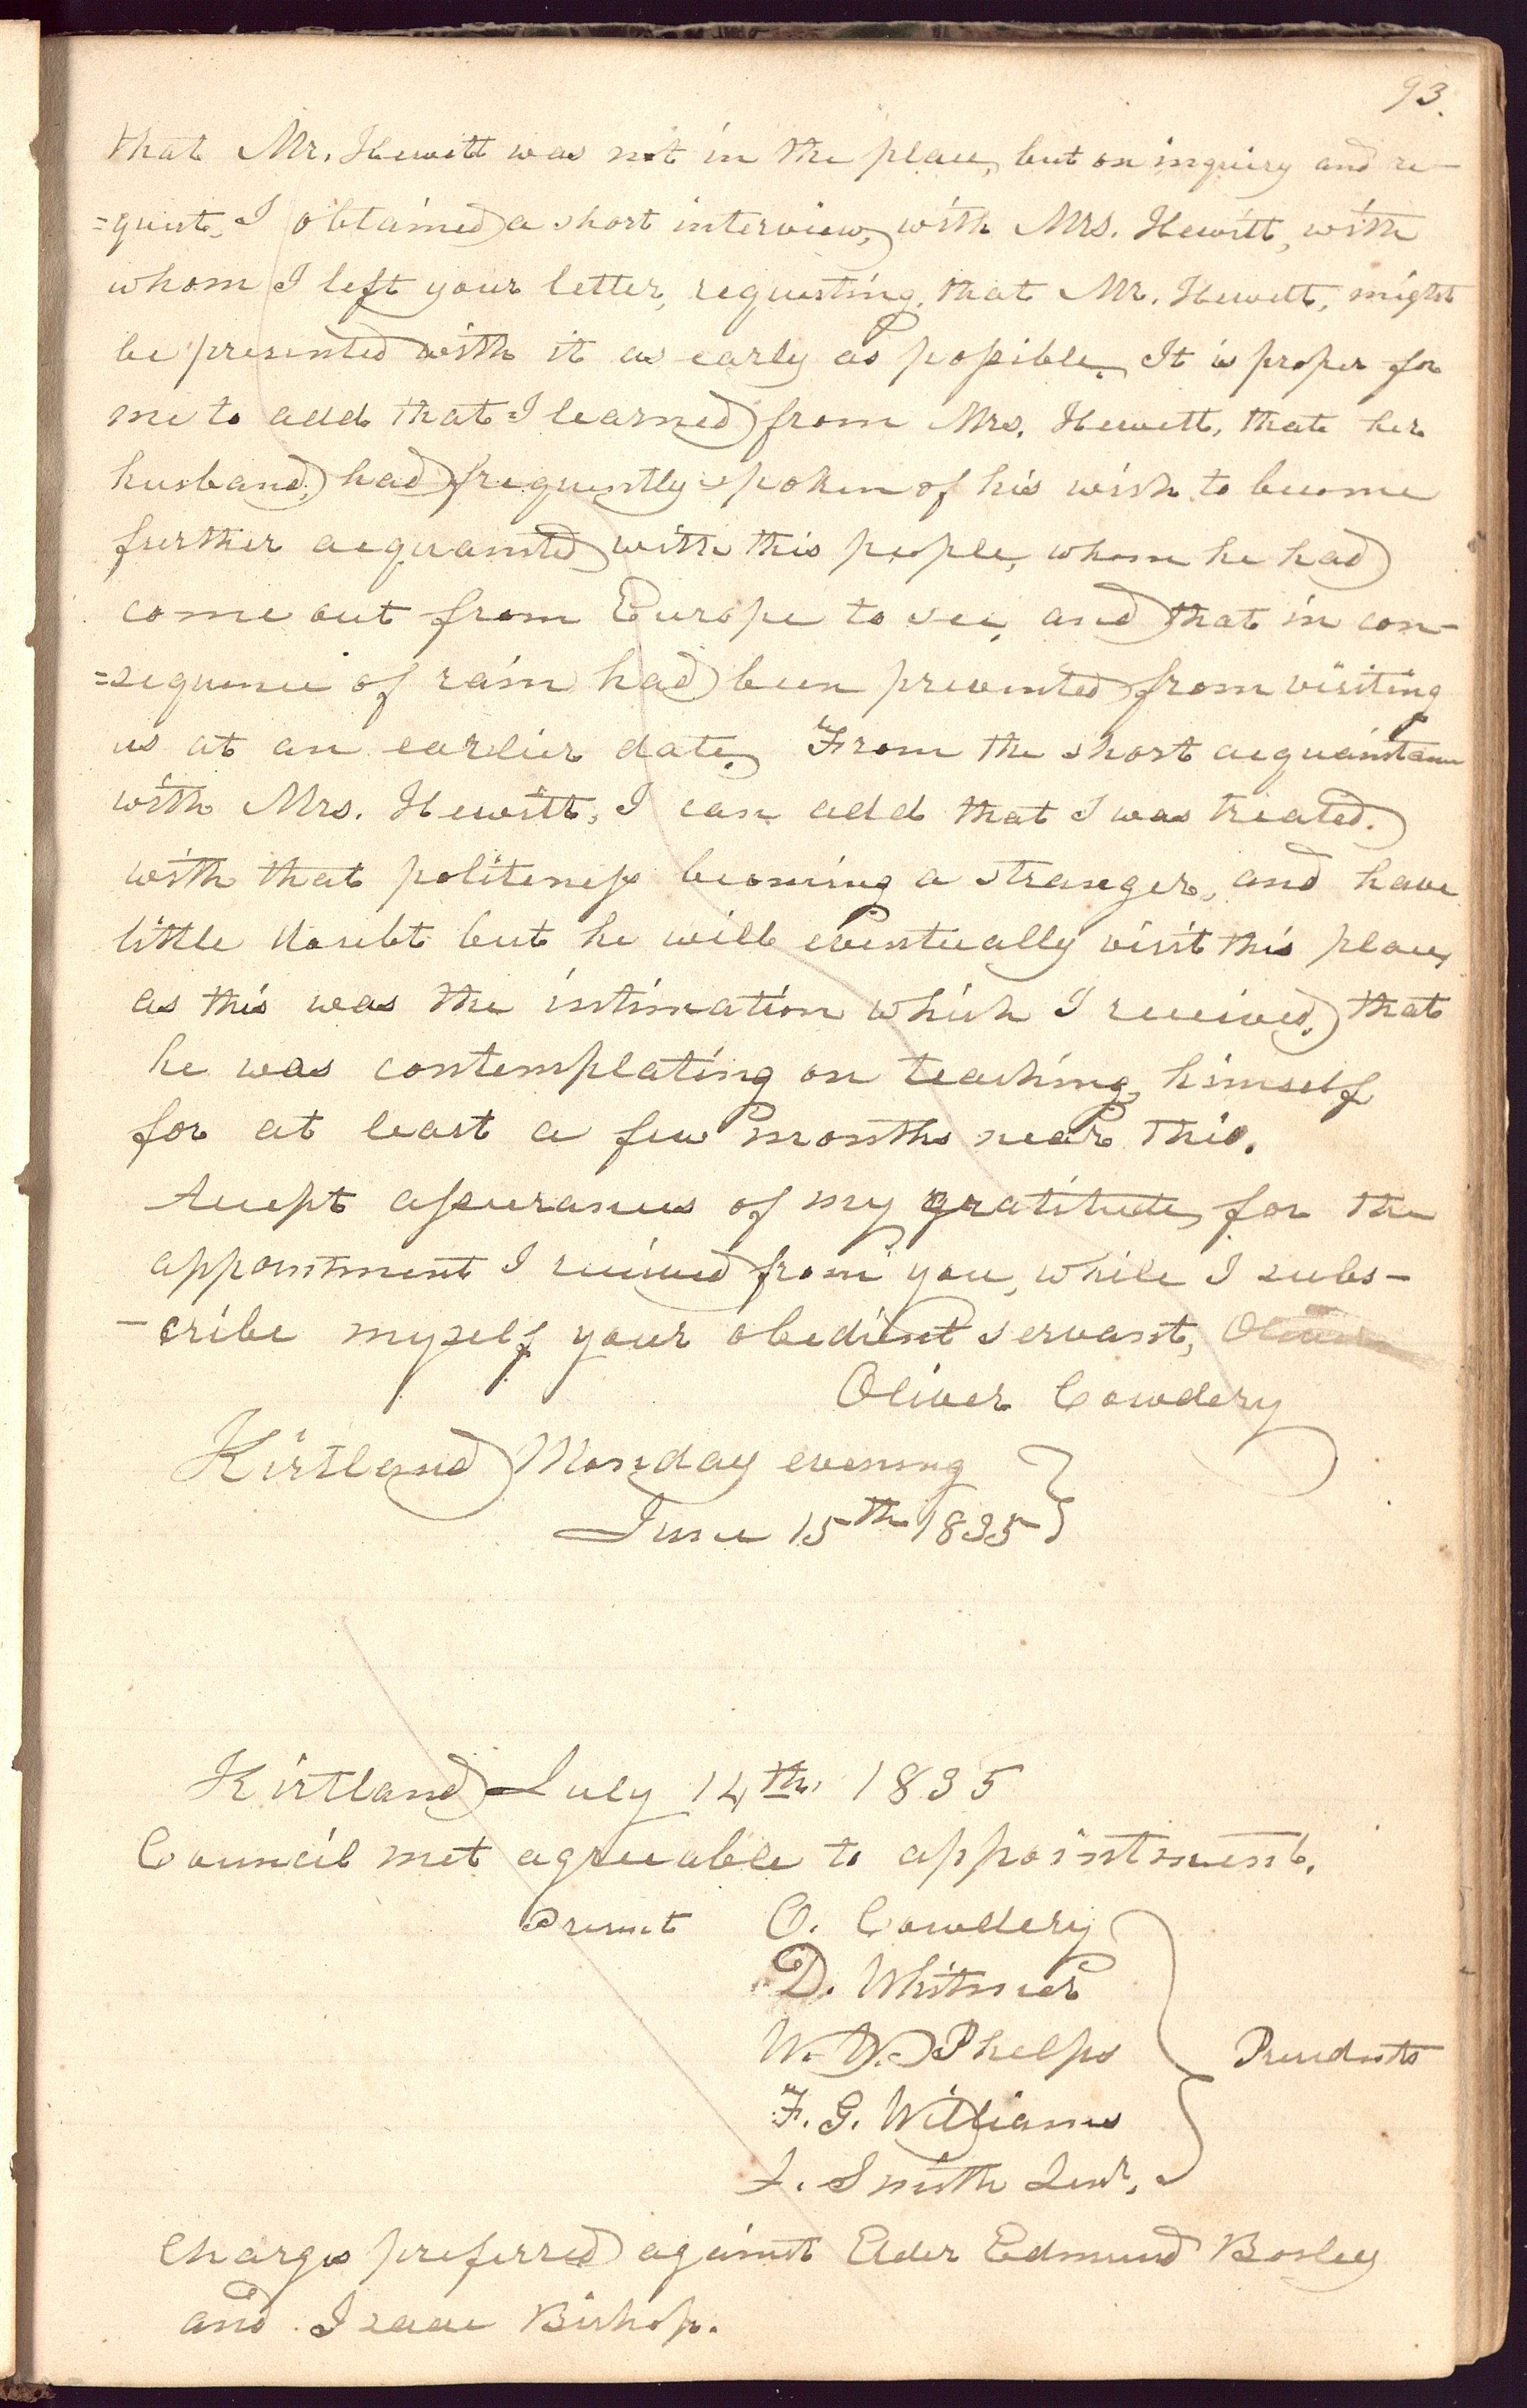 93.
that Mr. Hewitt was not in the place, but on inquiry and re-
=quest, I obtained a short interview, with Mrs. Hewitt, with
whom I left your letter, requesting, that Mr. Hewitt, might
be presented with it as early as possible. It is proper for
me to add that I learned from Mrs. Hewitt, that her
husband, had frequently spoken of his wish to become
further acquainted with this people, whom he had
come out from Europe to see, and that in con-
=sequence of rain had been prevented from visiting
us at an earlier date. From the short acquaintance
with Mrs. Hewitt, I can add that I was treated.
with that politeness becoming a stranger, and have
little doubt but he will eventually visit this place,
as this was the intimation which I received, that
he was contemplating on teaching, himself
for at least a few months near this.
Accept assurances of my gratitude, for the
appointment I received from you, while I subs-
-cribe myself your obedient servant, Oliver
Oliver Cowdery
Kirtland Monday evening
June 15th 1835
Kirtland July 14th, 1835
Council met agreeable to appointment.
Present O. Cowdery
D. Whitmer
W. W. Phelps Presidents
F. G. Williams
J. Smith Senr.
Charges preferred against Elder Edmund Bosley
and Isaac Bishop.